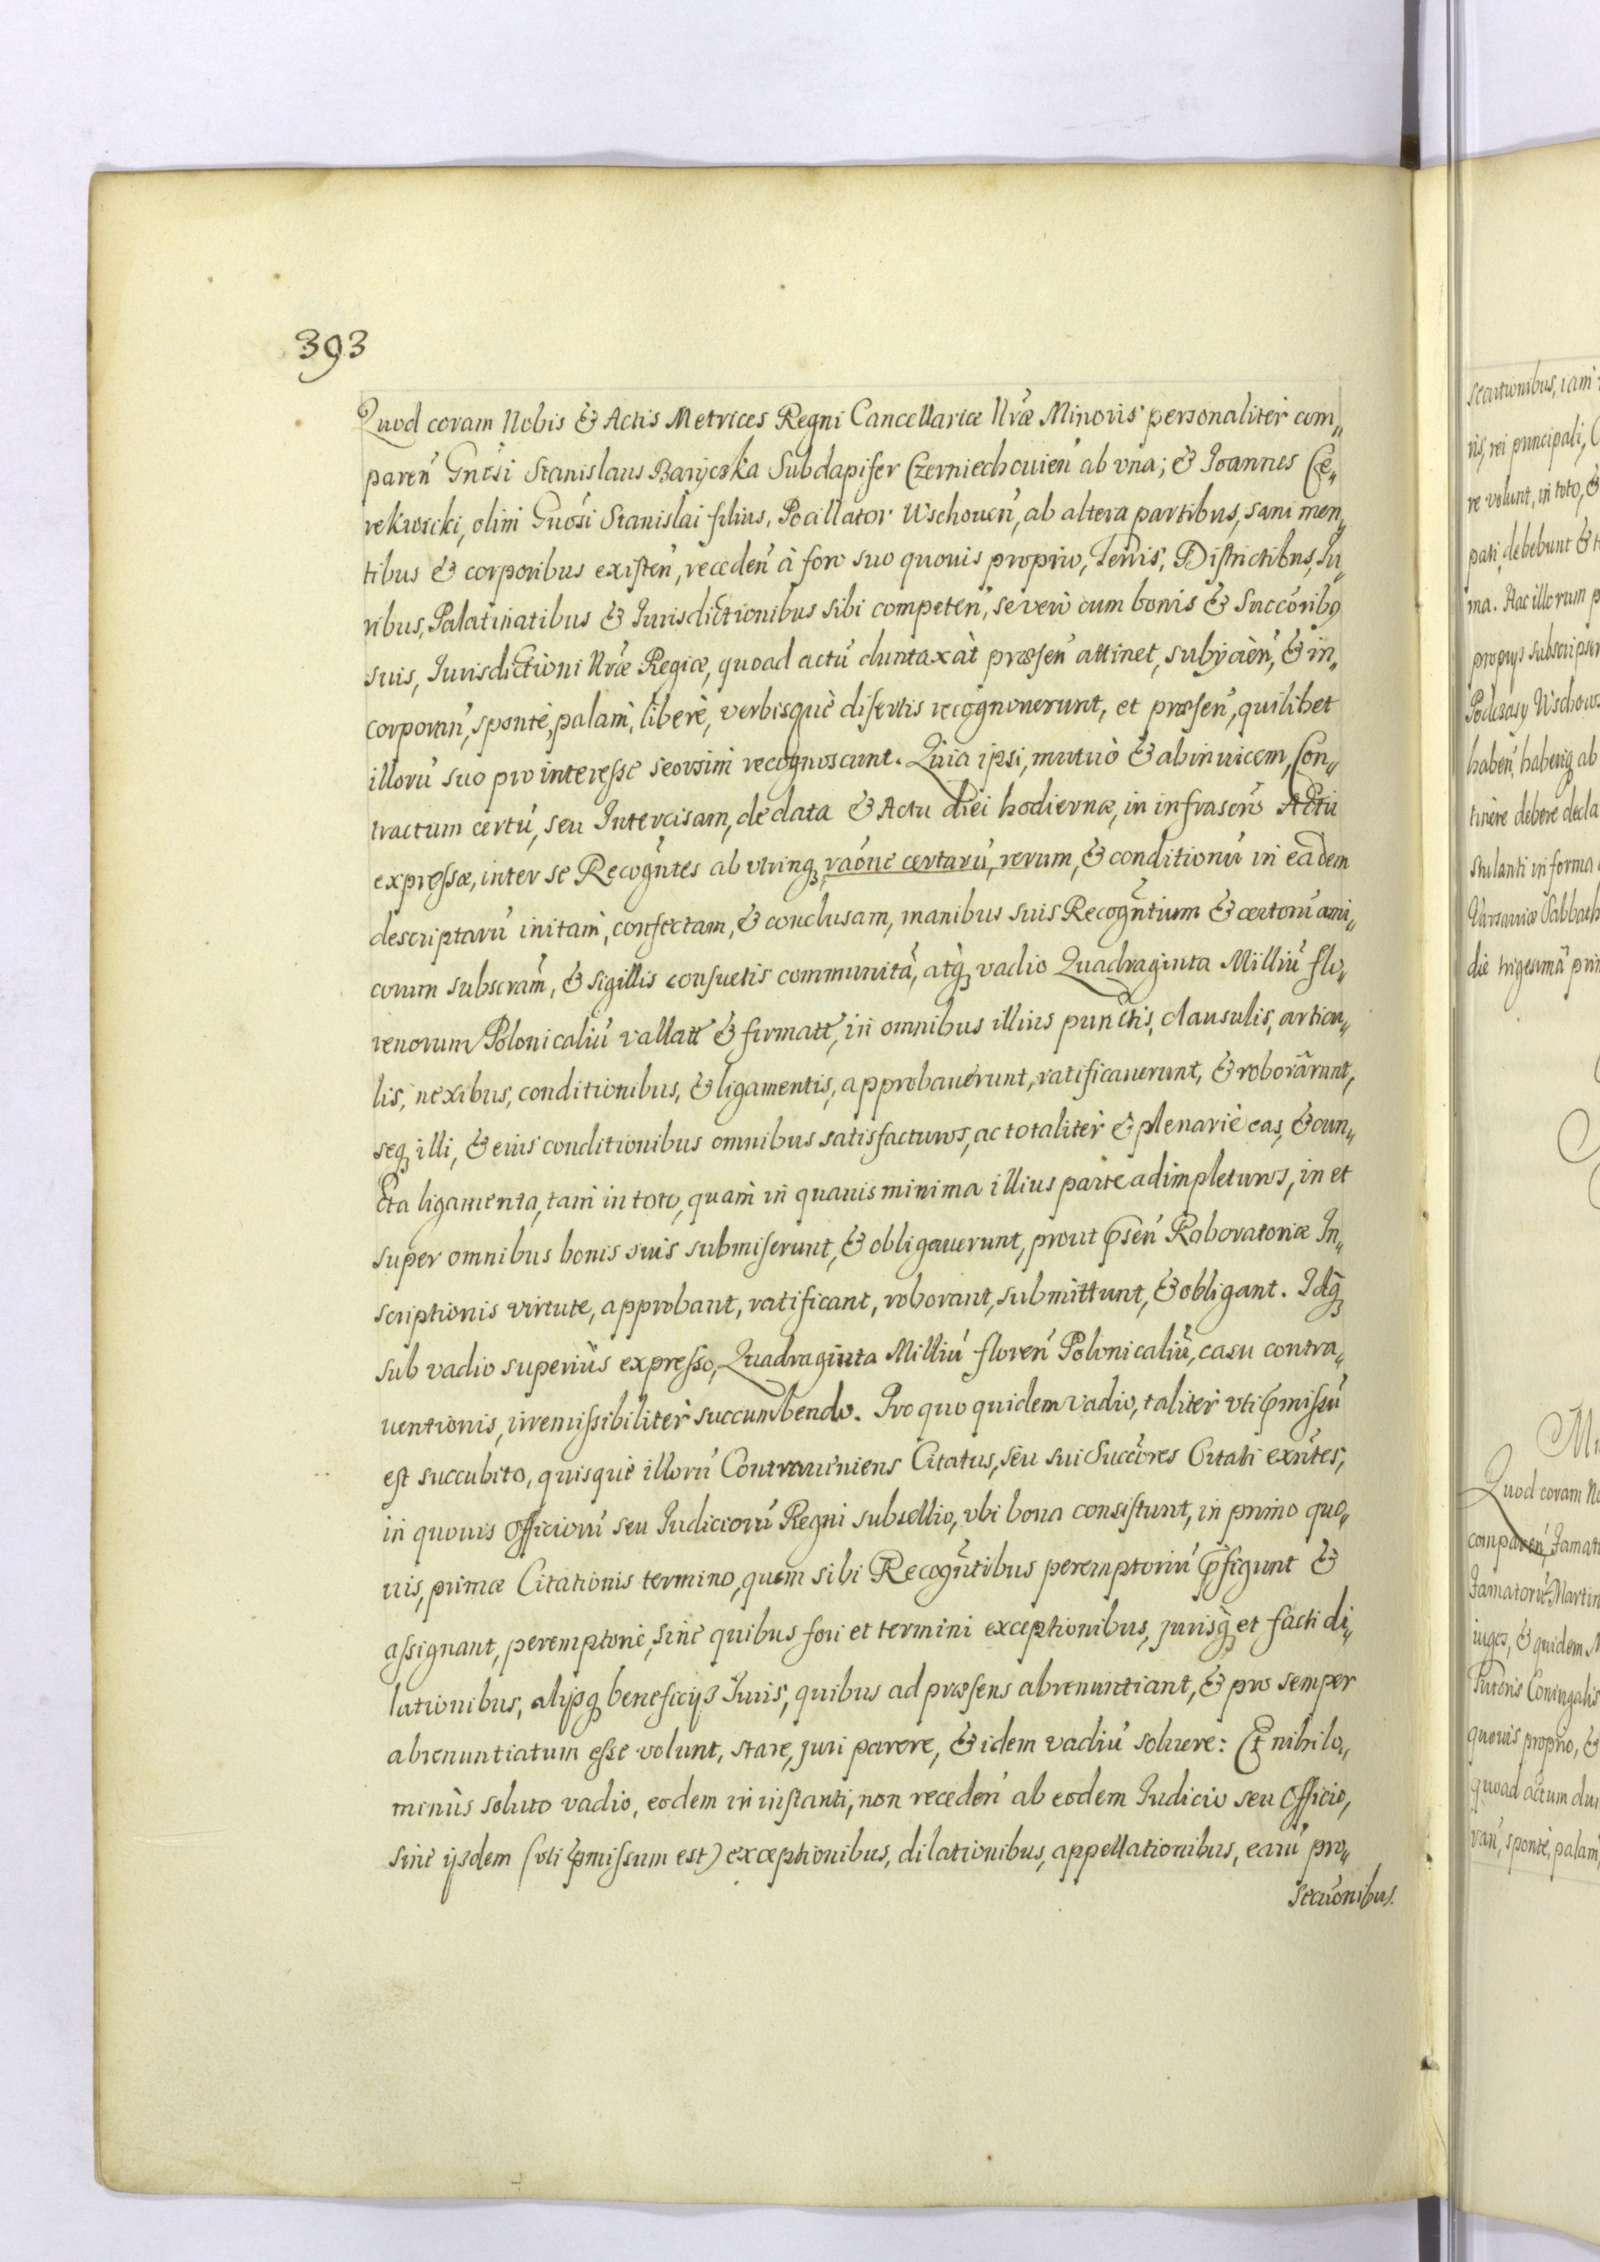 393
Quod coram Nobis & Actis Metrices Regni Cancellariæ Nr̃æ Minoris personaliter com„
paren̄ Gnosi Stanislaus Baryczka Subdapifer Czerniechouien̄ ab vna; & Joannes Ce„
rekwicki, olim Gnosi Stanislai filius, Pocillator Wschouen̄, ab altera partibus, sani men„
tibus & corporibus existen̄, receden̄ à foro suo quouis proprio, Terris, Districtibus, Iu„
ribus, Palatinatibus & Jurisdictionibus sibi competen̄, se verò cum bonis & Succ̄oribꝰ
suis, Jurisdictioni Nr̃æ Regiæ, quoad actū duntaxàt præsen̄ attinet, subijcien̄, & in„
corporan̄, spontè, palàm, liberè, verbisquè disertis recognouerunt, et præsen̄, quilibet
illorū suo pro interesse seorsim recognoscunt. Quia ipsi, mutuò & ab inuicem, Con„
tractum certū, seu Intercisam, de data & Actu diei hodiernæ, in infrascr̃o Actu
expressæ, inter se Recogñtes ab vtrinqꝫ, rãone certarū, rerum, & conditionū in eadem
descriptarū initam, confectam, & conclusam, manibus suis Recogñtium & certorū ami„
corum subscram̄, & sigillis consuetis communitā, atqꝫ vadio Quadraginta Milliū flo„
renorum Polonicaliū vallatt̄ & firmatt̄, in omnibus illius punctis, clausulis, articu„
lis, nexibus, conditionibus, & ligamentis, approbauerunt, ratificauerunt, & roborârunt,
seqꝫ illi, & eius conditionibus omnibus satisfacturos, ac totaliter & plenariè eas, & cun„
cta ligamenta, tam in toto, quam in quauis minima illius parte adimpleturos, in et
super omnibus bonis suis submiserunt, & obligauerunt, prout p̃sen̄ Roboratoriæ In„
scriptionis virtute, approbant, ratificant, roborant, submittunt, & obligant. Idqꝫ
sub vadio superiùs expresso, Quadraginta Milliū floren̄ Polonicaliū, casu contra„
uentionis, irremissibiliter succumbendo. Pro quo quidem vadio, taliter vti p̃missū
est succubito, quisquè illorū Contraueniens Citatus, seu sui Succ̄ores Citati exñtes,
in quouis Officiorū seu Judiciorū Regni subsellio, vbi bona consistunt, in primo quo„
uis, primæ Citationis termino, quem sibi Recogñtibus peremptoriū p̃figunt &
assignant, peremptoriè, sine quibus fori et termini exceptionibus, jurisqꝫ et facti di„
lationibus, alijsqꝫ beneficijs Juris, quibus ad præsens abrenuntiant, & pro semper
abrenuntiatum esse volunt, stare, juri parere, & idem vadiū soluere: Et nihilo„
minùs soluto vadio, eodem in instanti, non receden̄ ab eodem Judicio seu Officio,
sine ijsdem (vti p̃missum est) exceptionibus, dilationibus, appellationibus, earū pro„
secūonibus.